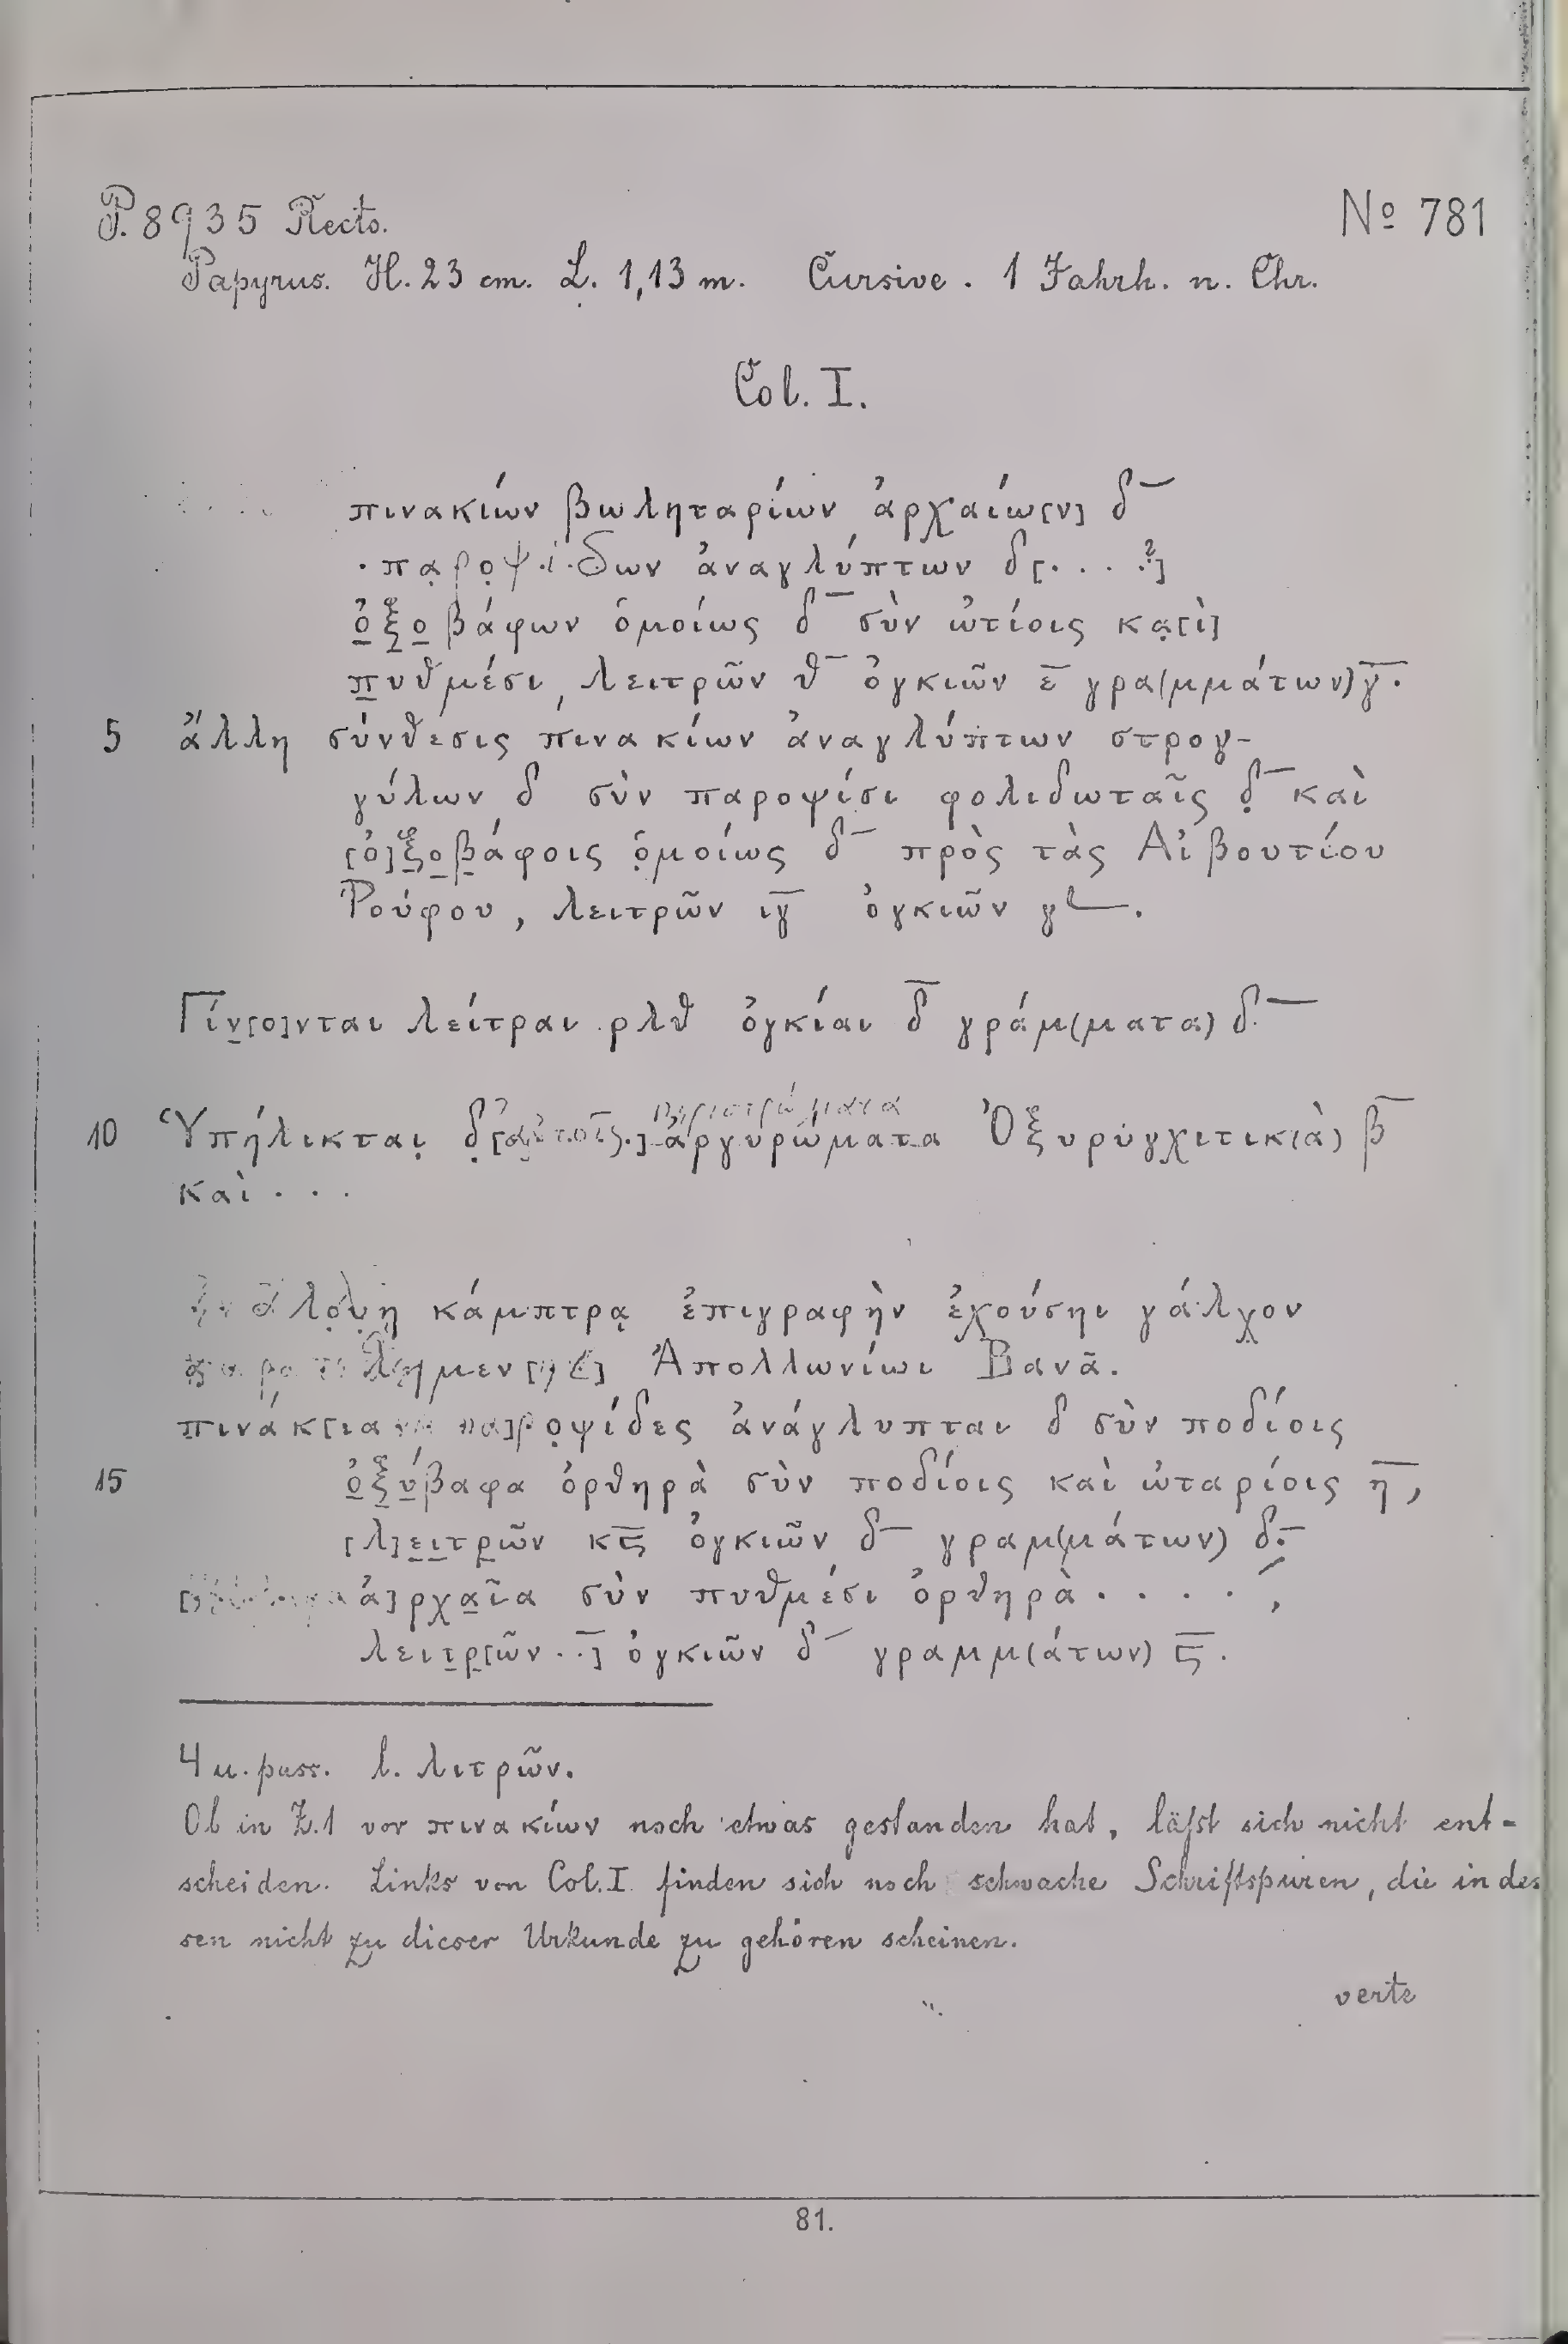 P. 8935 Recto. No 781
Papyrus. H. 23 cm. L. 1,13 m. Cursive. 1 Jahrh. n. Chr.
Col. I.
πινακίων βωληταρίων ἀρχαίω[ν] δ̅
. πα̣ρο̣ψ.ί.δων ἀναγλύπτων δ[. . . .̅?]
ὀξοβάφων ὁμοίως δ̅ σὺν ὠτίοις κα̣[ὶ]
πυθμέσι, λειτρῶν θ̅ ὀγκιῶν ε̅ γρα(μμάτων) γ̅.
5 ἄλλη σύνθεσις πινακίων ἀναγλύπτων στρογ-
γύλων δ σὺν παροψίσι φολιδωταῖς δ̣̅ καὶ
[ὀ]ξοβάφοις ὁμοίως δ̅ πρὸς τὰς Αἰβουτίου
Ῥούφου, λειτρῶν ιγ̅ ὀγκιῶν γ𐅵.
Γίν[ο]νται λείτραι ρλθ ὀγκίαι δ̅ γράμ(ματα) δ̅
10 Ὑπήλικται̣ ἀργυρώματα Ὀξυρυγχιτικ(ὰ) β̅
καὶ . . .
κάμπτρᾳ ἐπιγραφὴν ἐχούσηι γάλχον
Ἀπολλωνίωι Βανᾶ.
πινάκ[ια πα]ρο̣ψίδες ἀνάγλυπται δ σὺν ποδίοις
15 ὀξύβαφα ὀρθηρὰ σὺν ποδίοις καὶ ὠταρίοις η̅,
[λ]ειτρῶν κϛ̅ ὀγκιῶν δ̅ γραμ(μάτων) δ̅.
ἀ]ρχαῖα σὺν πυθμέσι ὀρθηρὰ . . . . ,
λειτρ[ῶν . .̅] ὀγκιῶν δ̅ γραμμ(άτων) ϛ̅.
4 u. pass. l. λιτρῶν.
Ob in Z. 1 vor πινακίων noch etwas gestanden hat, läßt sich nicht ent-
scheiden. Links von Col. I finden sich noch schwache Schriftspuren, die indes
sen nicht zu dieser Urkunde zu gehören scheinen.
verte
81.